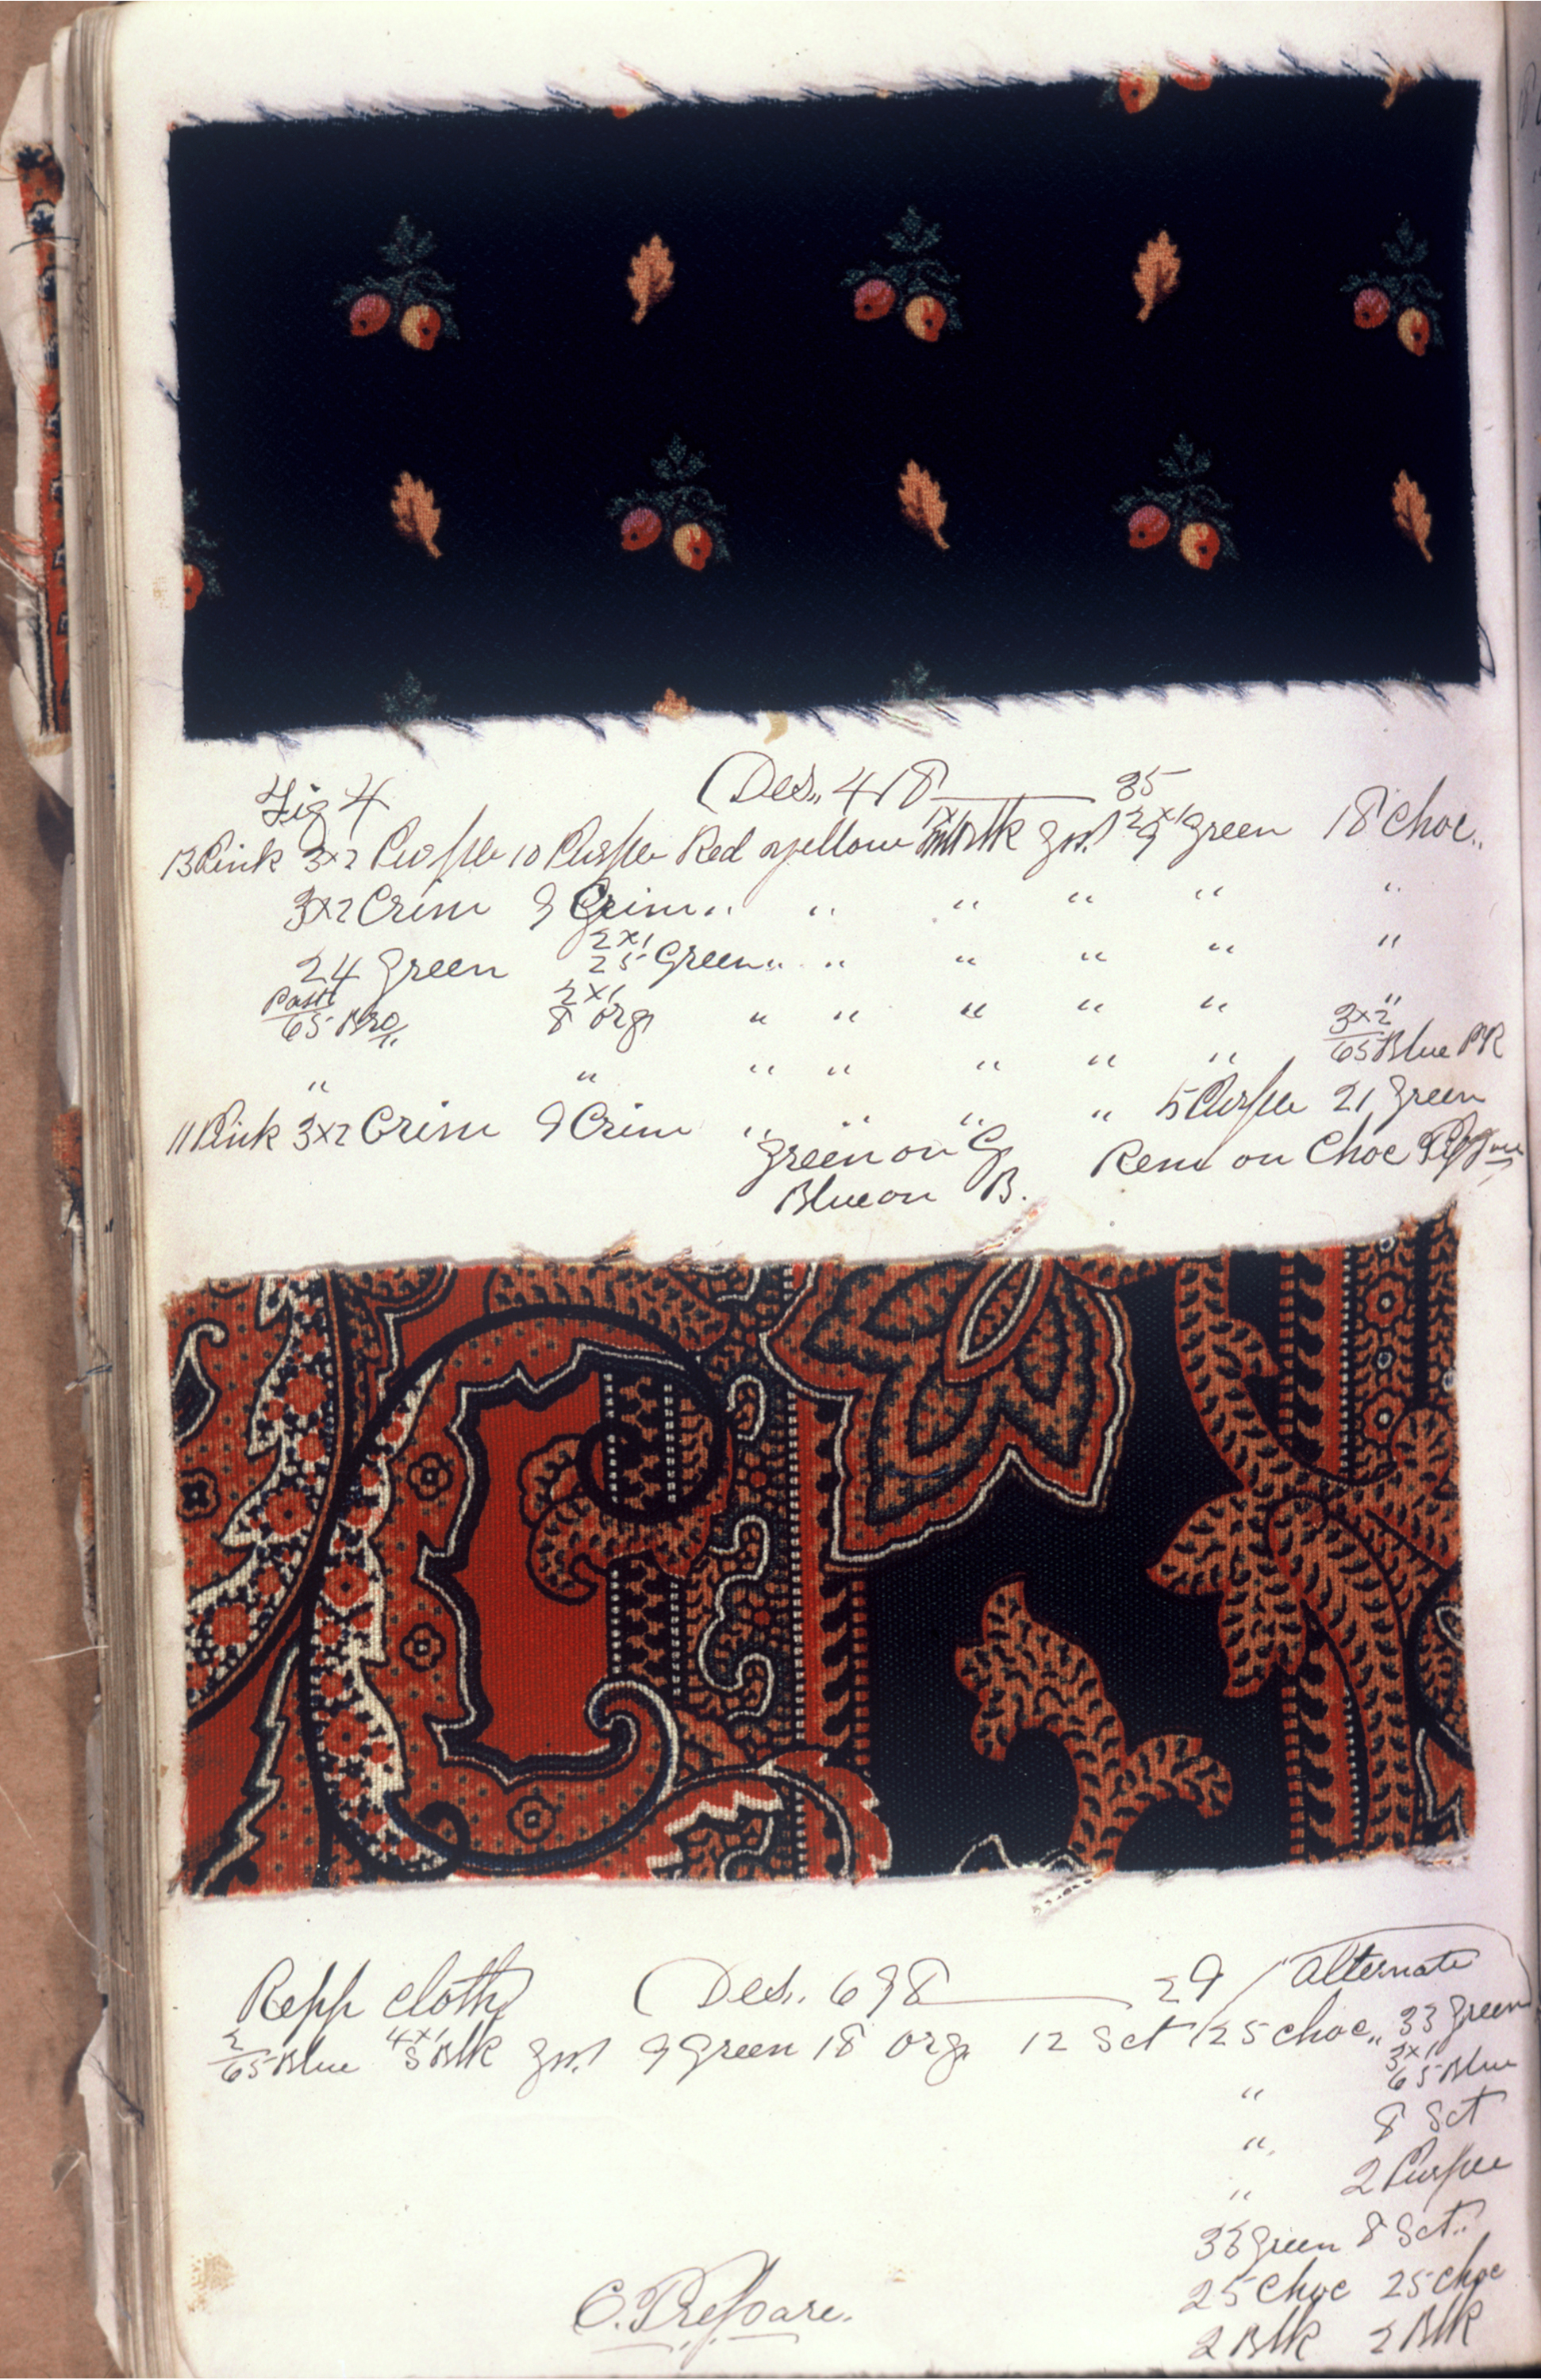 Fig 4 (Des,, 418 — 35
13 Pink 3x2 Purple 10 Purple Red yellow 1x1 Blk Gnd 2x1 9 Green 18 Choc,,
3x2 Crim 9 Crim,, " " " " "
24 Green 2x1 25 Green,, " " " " "
65 Bro 2x1 8 Org " " " " " "
" " " " " " " 3x2 65 Blue PR
11 Pink 3x2 Crim 9 Crim " " " " 5 Purple 21 Green
Green on G
Rem on Choc
Blue on B.
Repp cloth (Des. 698 — 29 / Alternate
2/65 Blue 4x1 8 Blk Gnd 9 Green 18 Org 12 Sct 25 choc,, 33 Green
" 3x1 65 Blue
" 8 Sct
" 2 Purple
33 Green 8 Sct,,
25 Choc 25 Choc
C. Prepare.
2 Blk 2 Blk